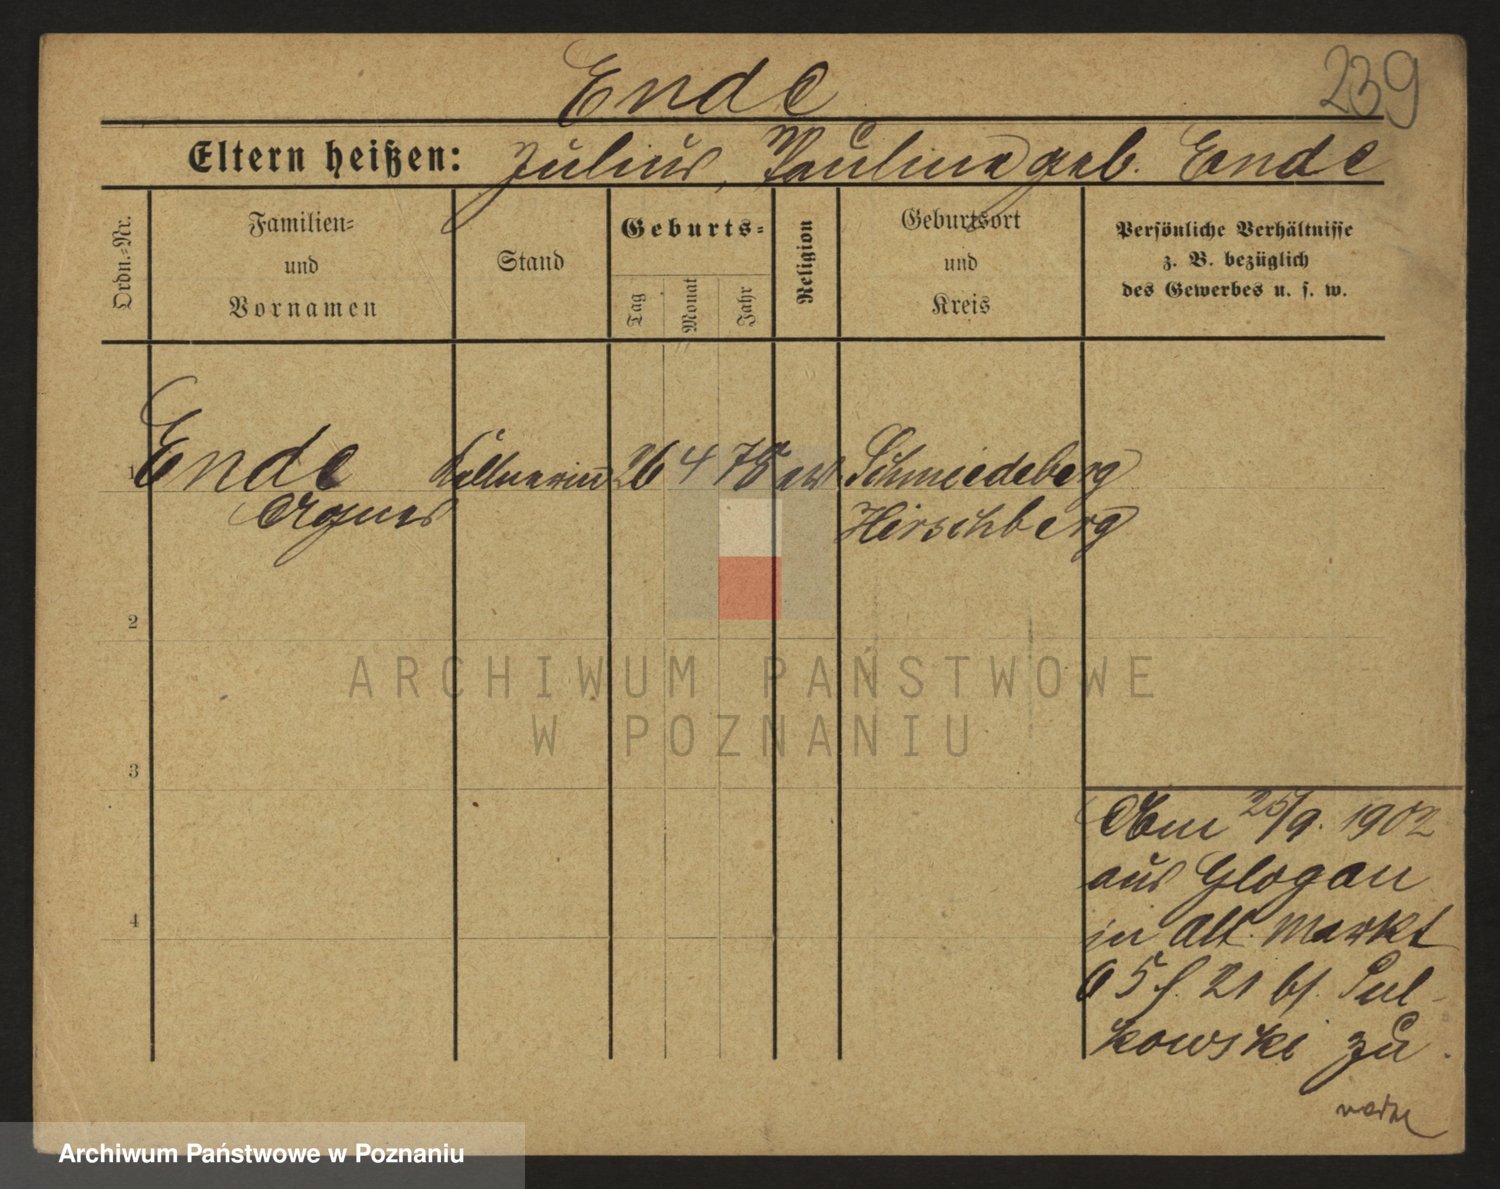 Ende
239
Eltern heißen: Julius, Pauline geb. Ende
Ordn.-Nr.
Familien=
und
Vornamen
Stand
Geburts=
Tag
Monat
Jahr
Religion
Geburtsort
und
Kreis
Persönliche Verhältnisse
z. B. bezüglich
des Gewerbes u. s. w.
1 Ende Kellnerin 26 4 78 ev Schmiedeberg
Agnes Hirschberg
2
3
4
Am 25/9. 1902
aus Glogau
in Alt. Markt
21 bei Sul-
kowski zu
ARCHIWUM PAŃSTWOWE
W POZNANIU
Archiwum Państwowe w Poznaniu